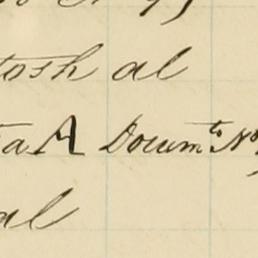 tosh al
ta A Docum^ts No
al